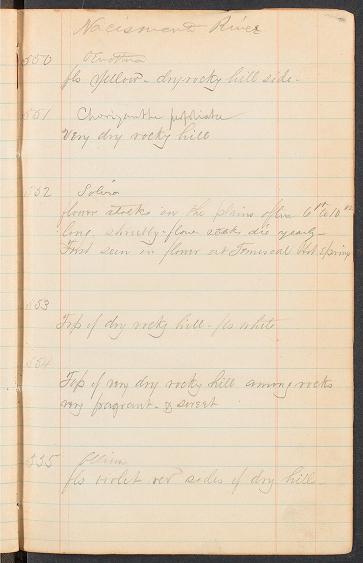 Nacismento River
550
fls Yellow - dry rocky hill side -
551 Chorizanthe perfoliata
Very dry rocky hill
552
flower stocks in the plains often 6 ft to 10
long, shrubby - flower stocks die yearly -
First seen in flower at Temescal Hot Springs
553
Top of dry rocky hill - fls white
554
Top of very dry rocky hill among rocks
very fragrant - & sweet
555 Allium
fls violet red sides of dry hills -